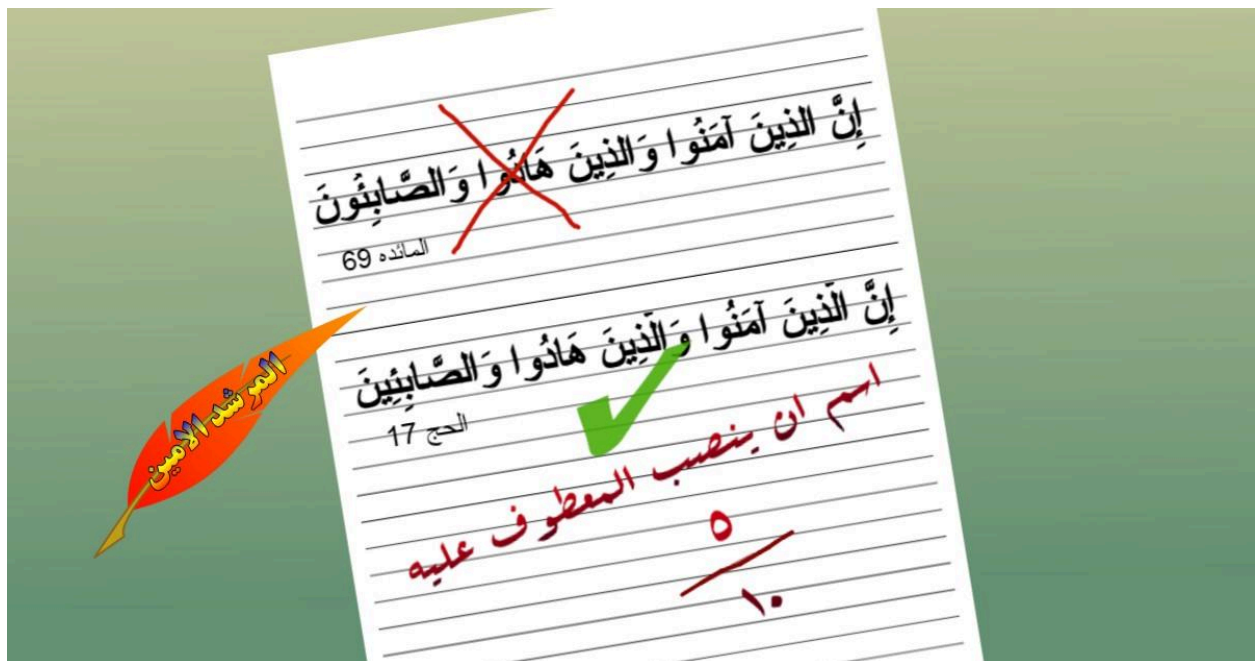 إِنَّ الذِينَ آمَنُوا وَالذِينَ هَادُوا وَالصَّابِئُونَ
المائده 69
إِنَّ الَّذِينَ آمَنُوا وَالَّذِينَ هَادُوا وَالصَّابِئِينَ
الحج 17
اسم ان ينصب المعطوف عليه
٥
١٠
المرشد الامين